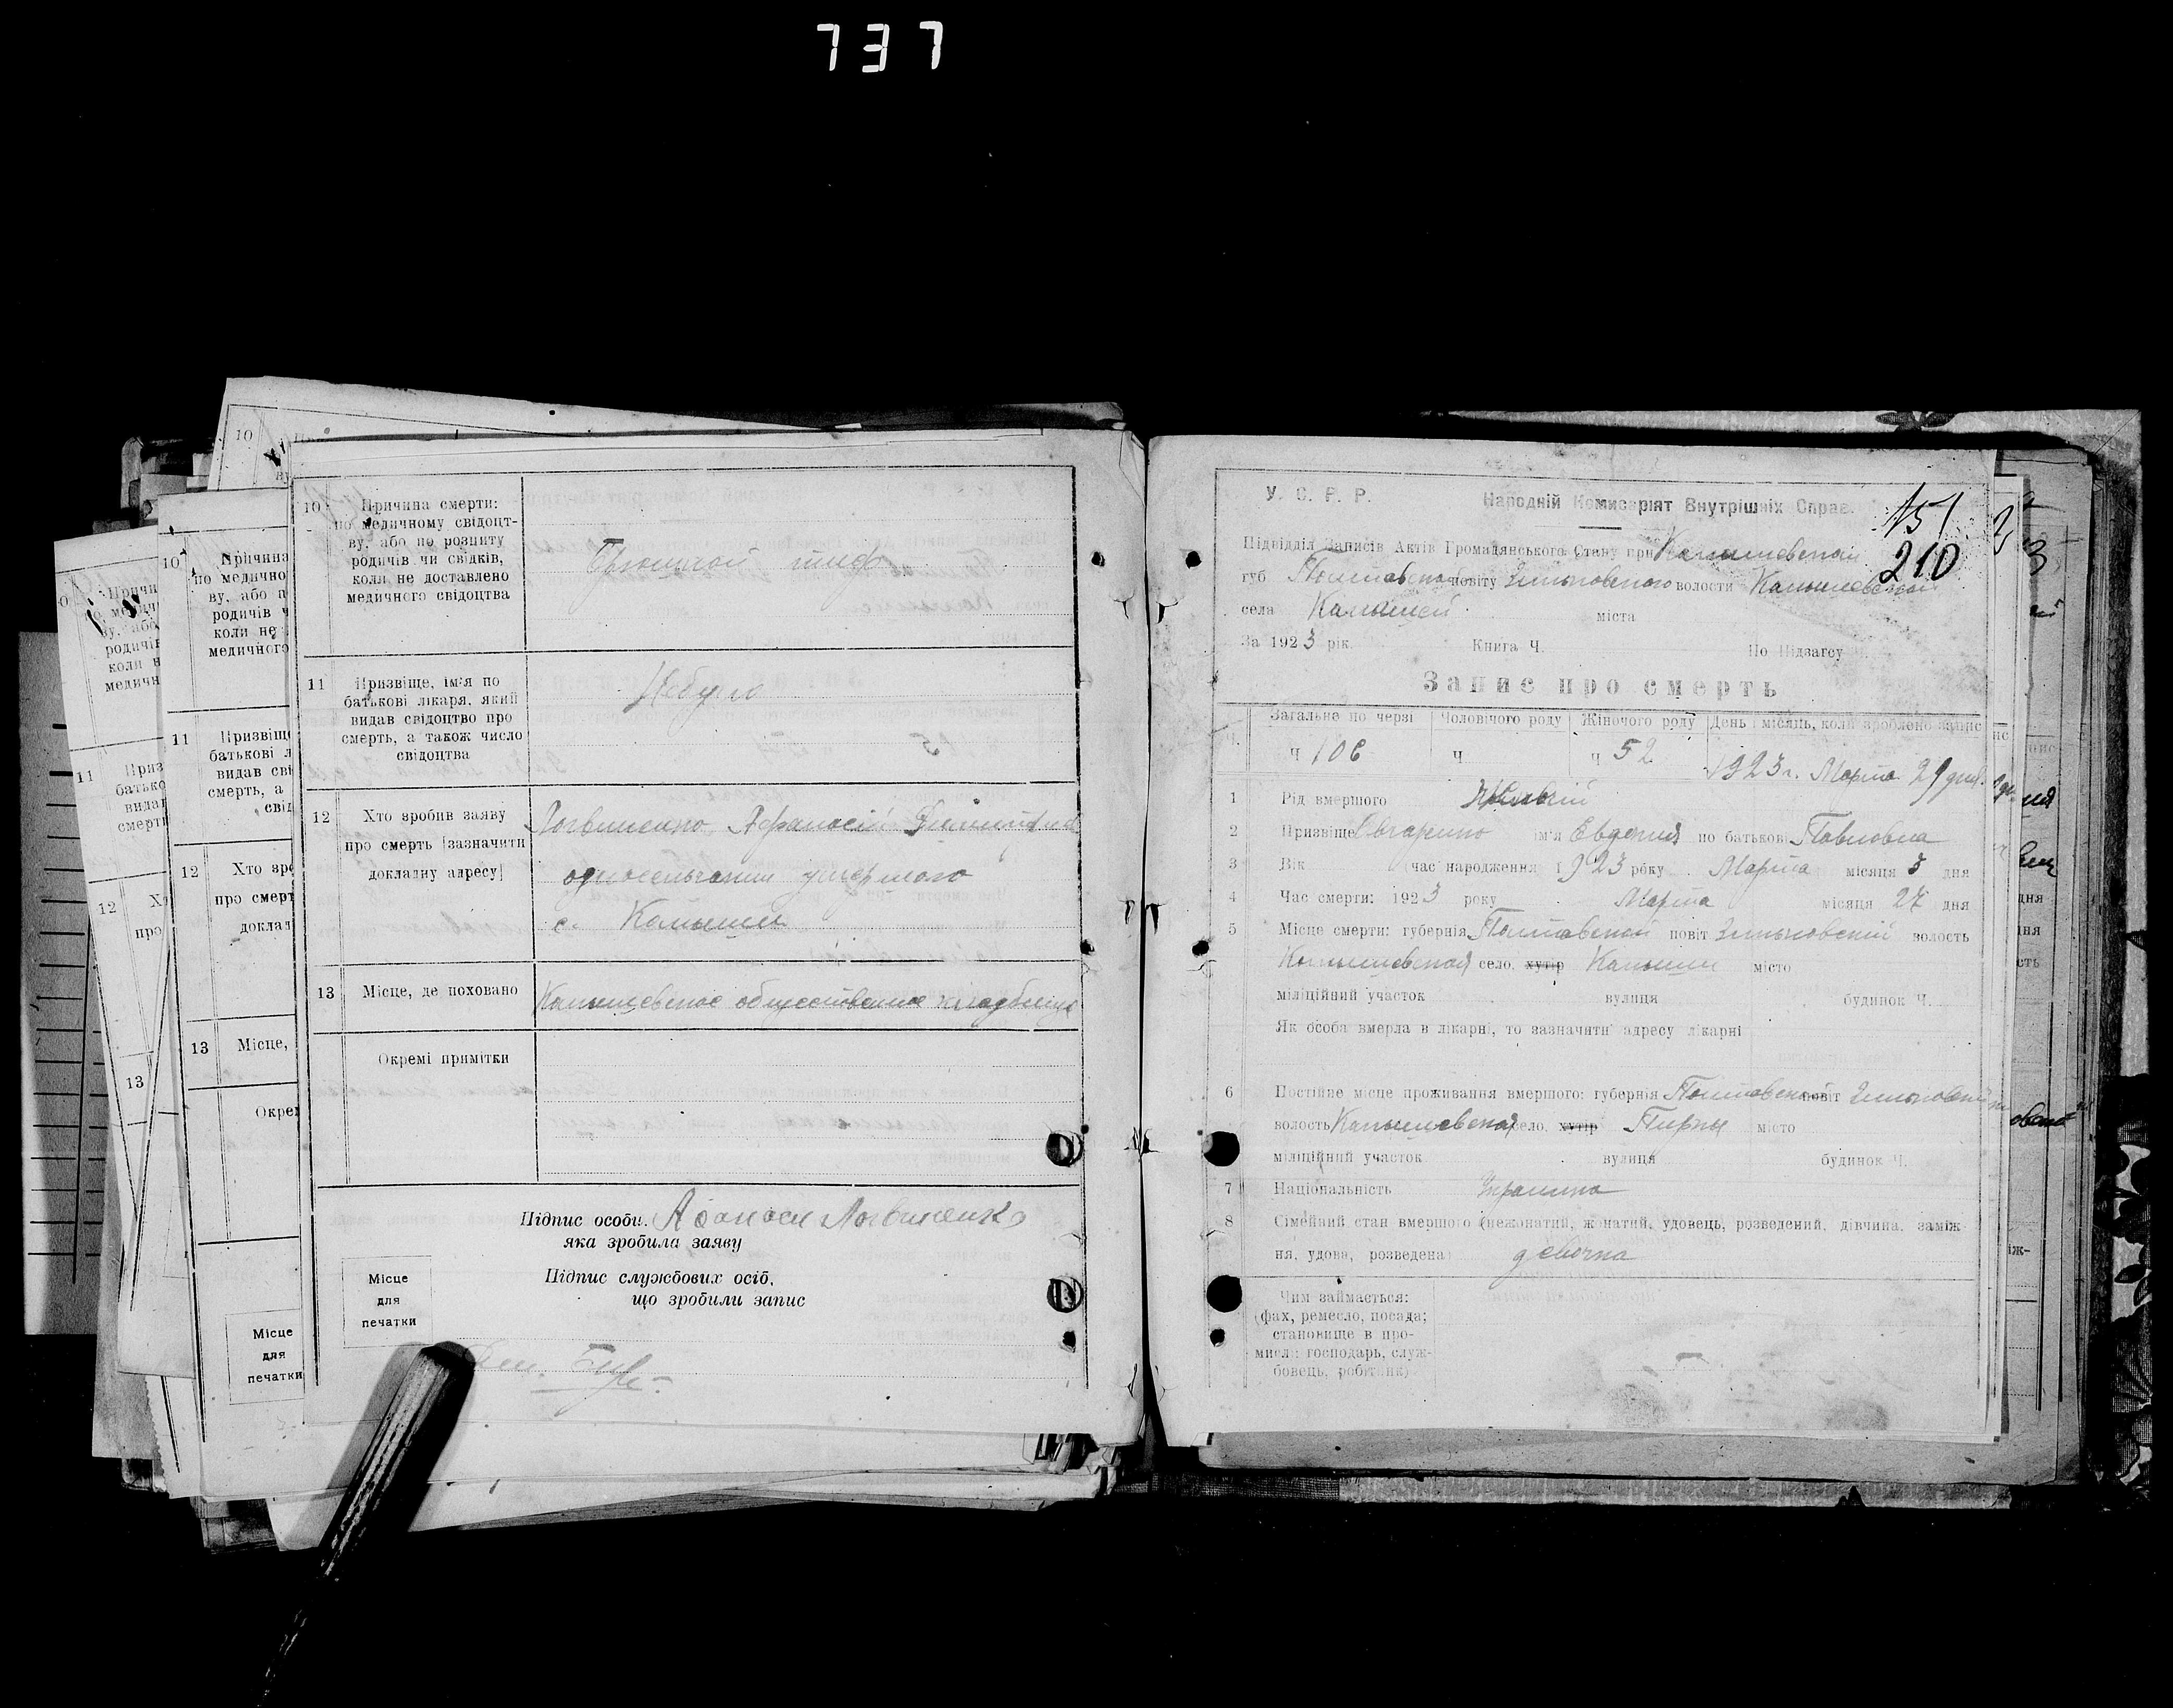 737
10
Причина смерти:
по медичному свідоцт-
ву, або по розпиту
родичів чи свідків,
коли не доставлено
медичного свідоцтва
Брюшной тиф
11
Призвіще, ім'я по
батькові лікаря, який
видав свідоцтво про
смерть, а також число
свідоцтва
Небуло
12
Хто зробив заяву
про смерть (зазначити
докладну адресу)
Логвиненко Афанасий
односельчанин умершого
с. Камыши
13
Місце, де поховано
Камышевское общественное кладбище
Окремі примітки
Підпис особи, Афонаси Логвиненко
яка зробила заяву
Підпис службових осіб,
що зробили запис
Місце
для
печатки
10
Причина
по медично
ву, або п
родичів ч
коли не
медичного
11
Призвіще
батькові л
видав сві
смерть, а
свід
12
Хто зро
про смерт
доклад
13
Місце,
Окре
Місце
для
печатки
11
12
13
У. С. Р. Р.
Народній Комисаріят Внутрішніх Справ.
151
210
Підвідділ Записів Актів Громадянського Стану при Камышевской
губ Полтавской повіту Зеньковского волости Камышевской
села Камышей міста
За 1923 рік. Книга Ч. По Підзагсу Ч.
Запис про смерть
Ч.
Загальне по черзі
Чоловічого роду
Жіночого роду
День і місяць, коли зроблено запис
Ч 106
Ч
Ч 52
1923 г. Марта 29 дня.
1 Рід вмершого
2 Призвіще ім'я Евдокия по батькові Павловна
3 Вік час народження 1923 року Марта місяця 3 дня
4 Час смерти: 1923 року Марта місяця 27 дня
5 Місце смерти: губернія Полтавской повіт Зеньковский волость
Камышевская село, хутір Камыши місто
міліційний участок вулиця будинок Ч.
Як особа вмерла в лікарні, то зазначити адресу лікарні
6 Постійне місце проживання вмершого: губернія Полтавская повіт Зеньковский
волость Камышевская село, хутір Пирки місто
міліційний участок вулиця будинок Ч.
7 Національність Украинка
8 Сімейний стан вмершого (нежонатий, жонатий, удовець, розведений, дівчина, заміж-
ня, удова, розведена) девочка
Чим займається:
(фах, ремесло, посада;
становище в про-
мислі: господарь, служ-
бовець, робітник)